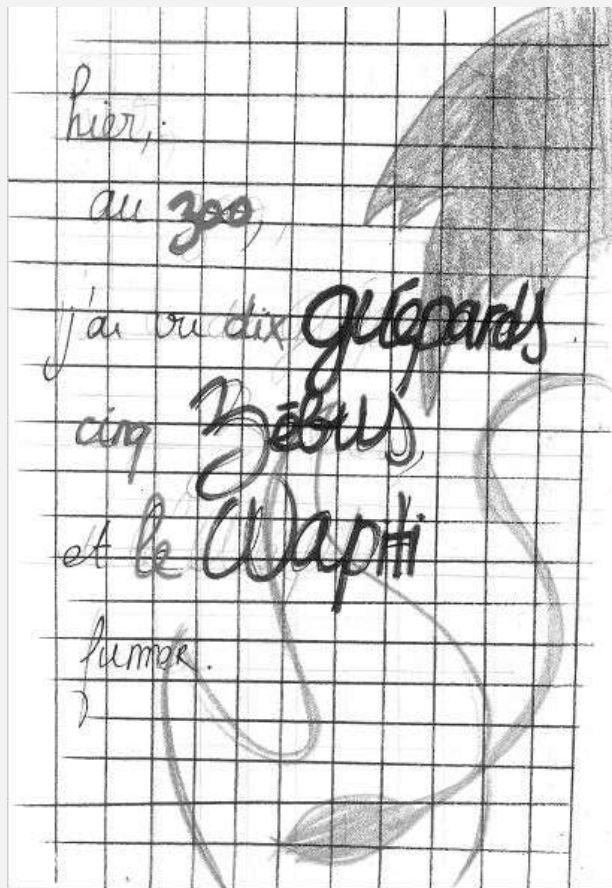 hier,
au zoo,
j'ai vu dix guépards
cinq zébus
et le Wapiti
fumer.